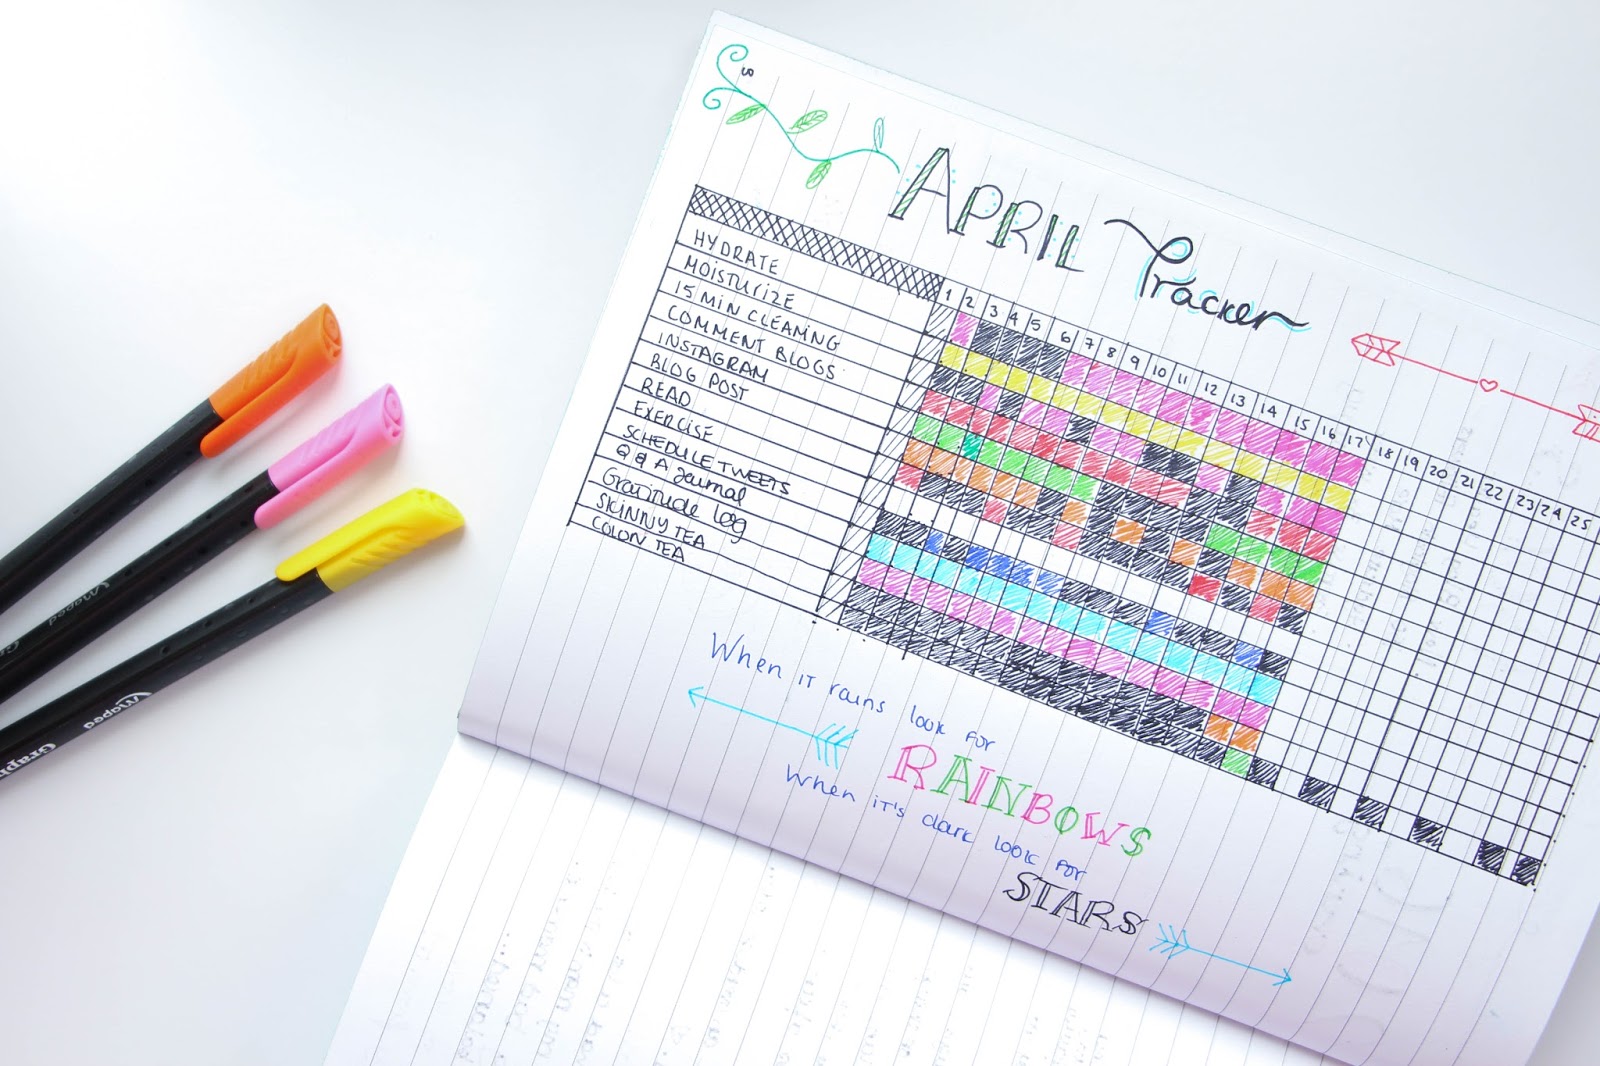 APRIL Tracker
1 2 3 4 5 6 7 8 9 10 11 12 13 14 15 16 17 18 19 20 21 22 23 24 25
HYDRATE
MOISTURIZE
15 MIN CLEANING
COMMENT BLOGS
INSTAGRAM
BLOG POST
READ
EXERCISE
SCHEDULE TWEETS
Q & A Journal
Gratitude log
SKINNY TEA
COLON TEA
When it rains look for
RAINBOWS
When it's dark look for
STARS
Maped
Maped
Graph